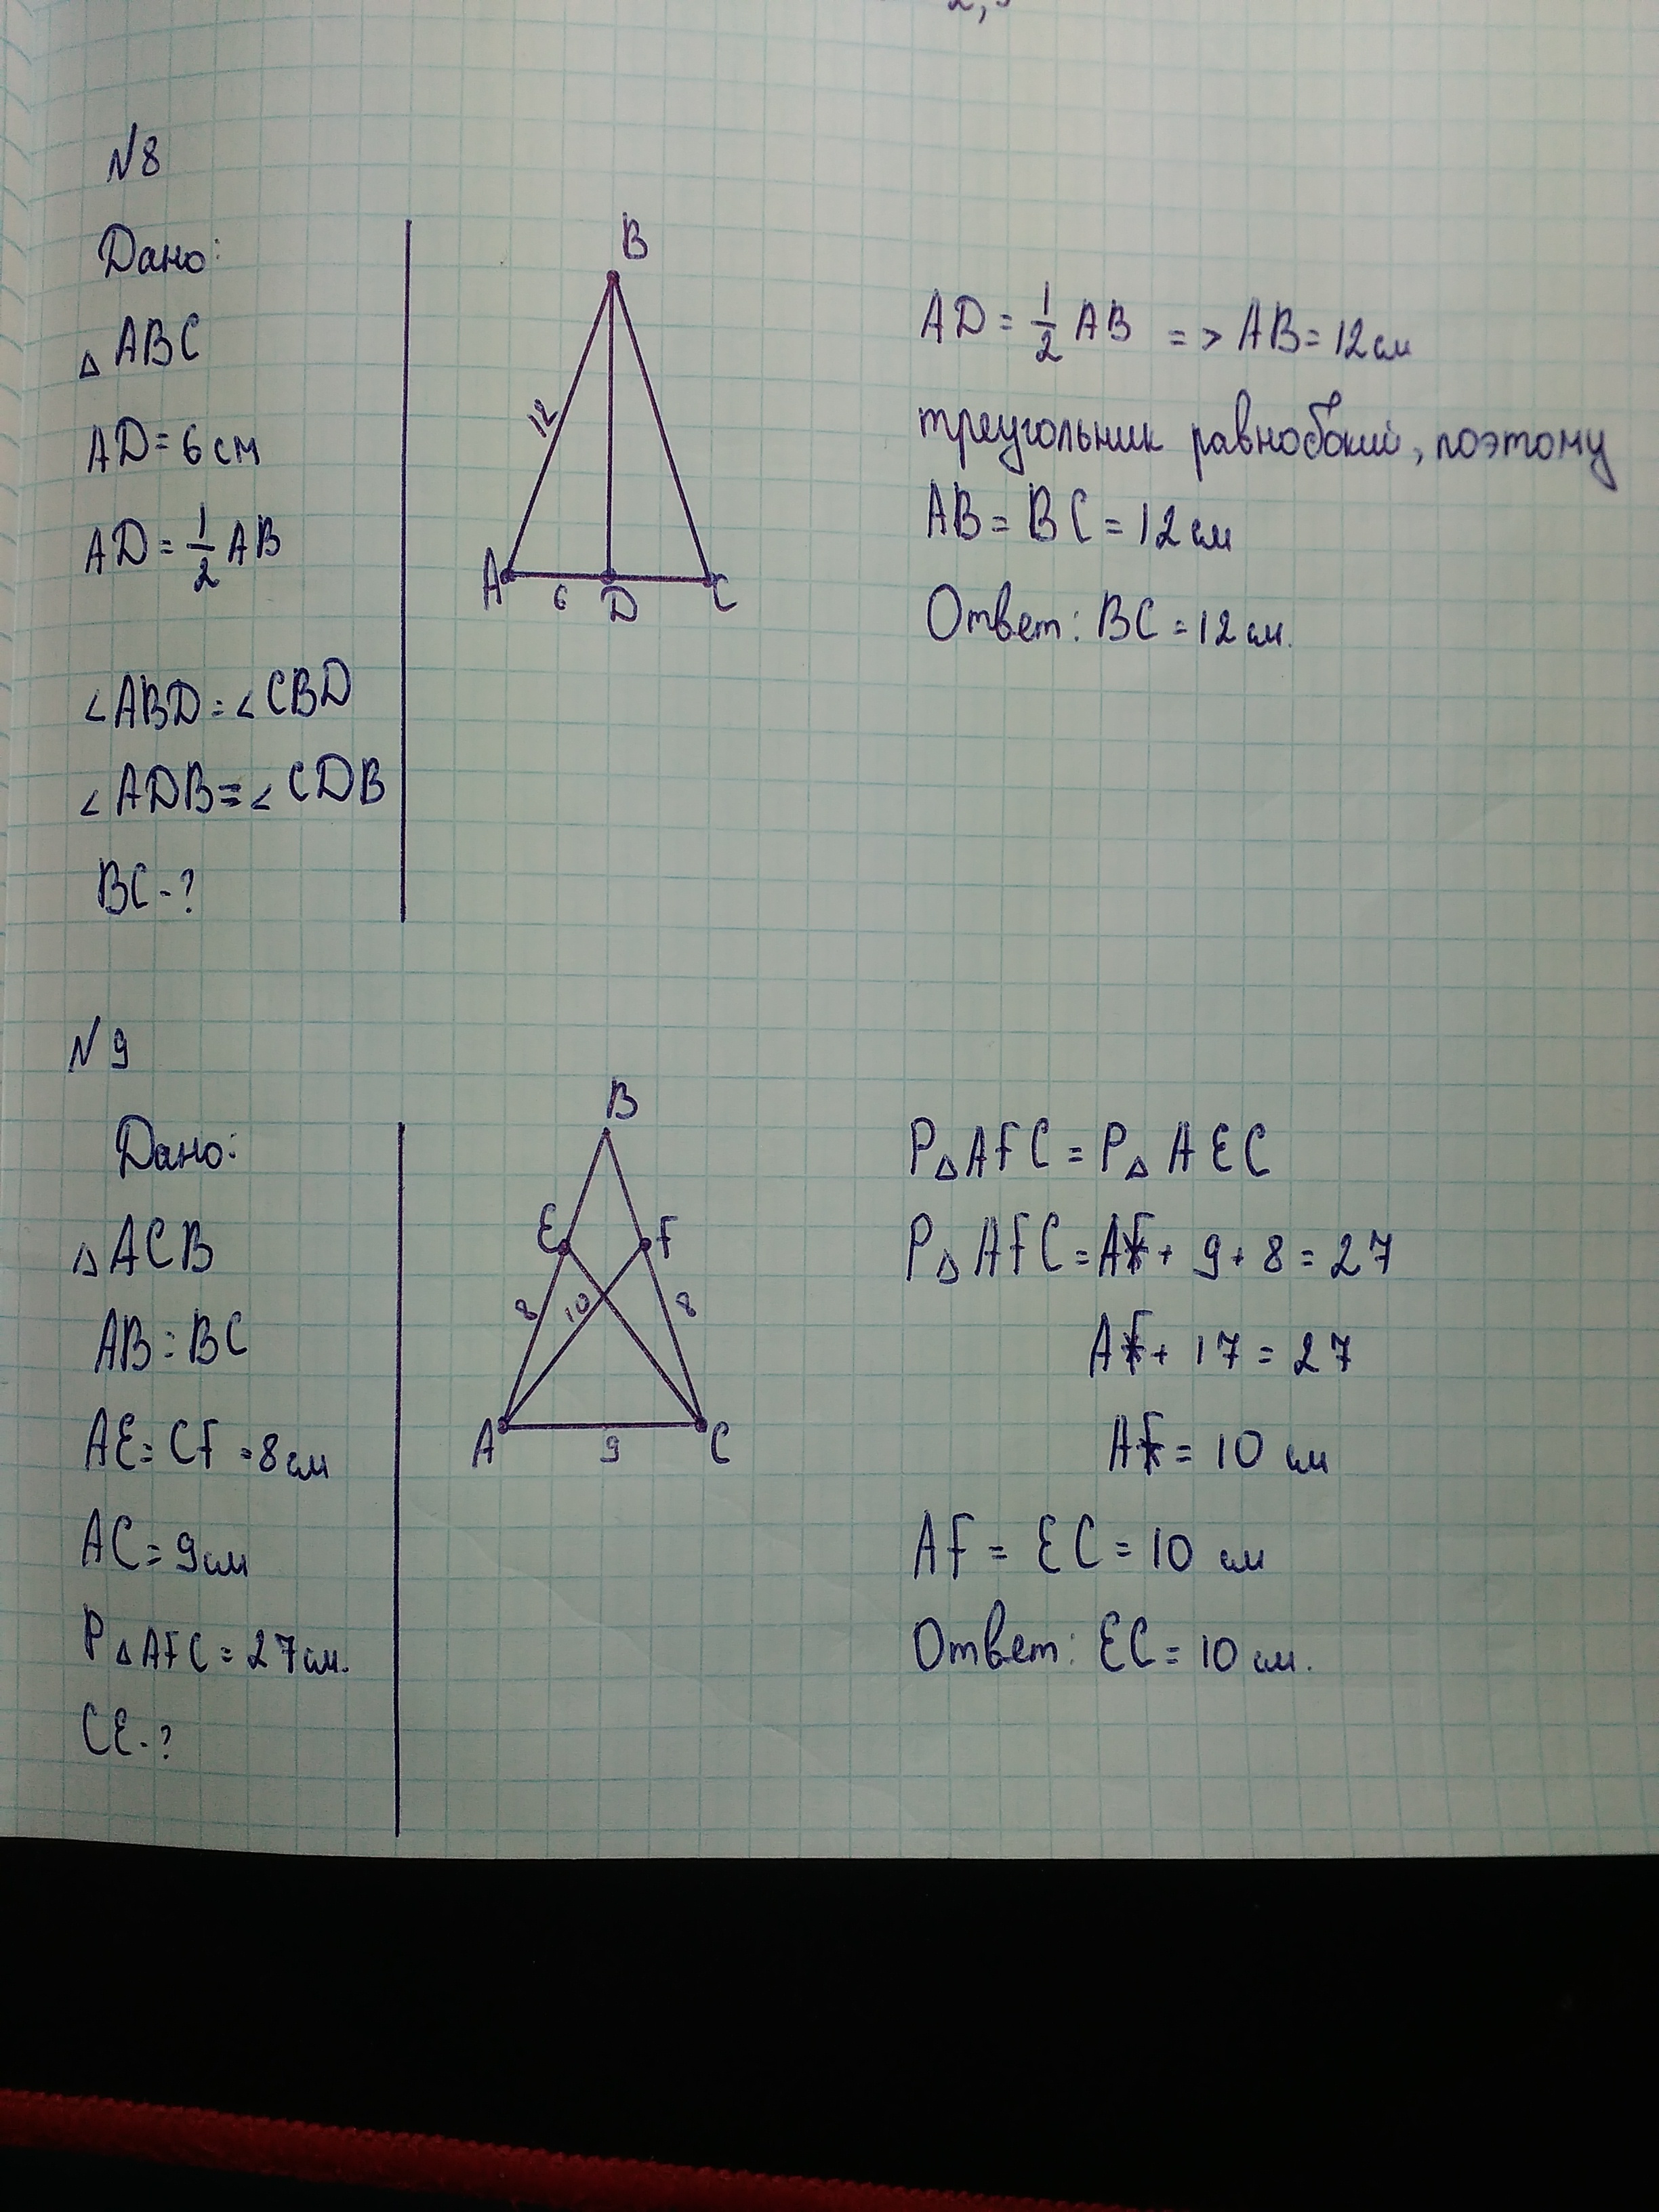 2,5
N8
Дано:
△ABC
AD=6см
AD=1/2 AB
∠ABD=∠CBD
∠ADB=∠CDB
BC-?
B
12
A
6
D
C
AD=1/2 AB => AB=12см
треугольник равнобокий, поэтому
AB=BC=12см
Ответ: BC=12см.
N9
Дано:
△ACB
AB=BC
AE=CF=8см
AC=9см
P△AFC=27см.
CE-?
B
E
F
8
10
8
A
9
C
P△AFC=P△AEC
P△AFC=AF+9+8=27
AF+17=27
AF=10 см
AF=EC=10 см
Ответ: EC=10 см.